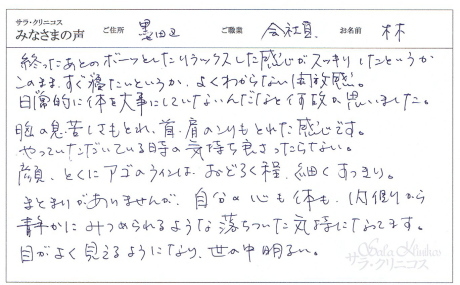 サラ・クリニコス
みなさまの声 ご住所 墨田区 ご職業 会社員 お名前 林
終ったあとのボーッとしたリラックスした感じがスッキリしたというか
このまますぐ寝たいというか、よくわからない開放感。
日常的に体を大事にしていないんだなと何故か思いました。
胸の息苦しさもとれ、首・肩のこりもとれた感じです。
やっていただいている時の気持ち良さったらない。
顔、とくにアゴのラインは、おどろく程、細くすっきり。
まとまりがありませんが、自分の心も体も、内側から
静かにみつめられるような落ちついた気持になってます。
目がよく見えるようになり、世の中明るい。
Sala Klinikos
サラ・クリニコス